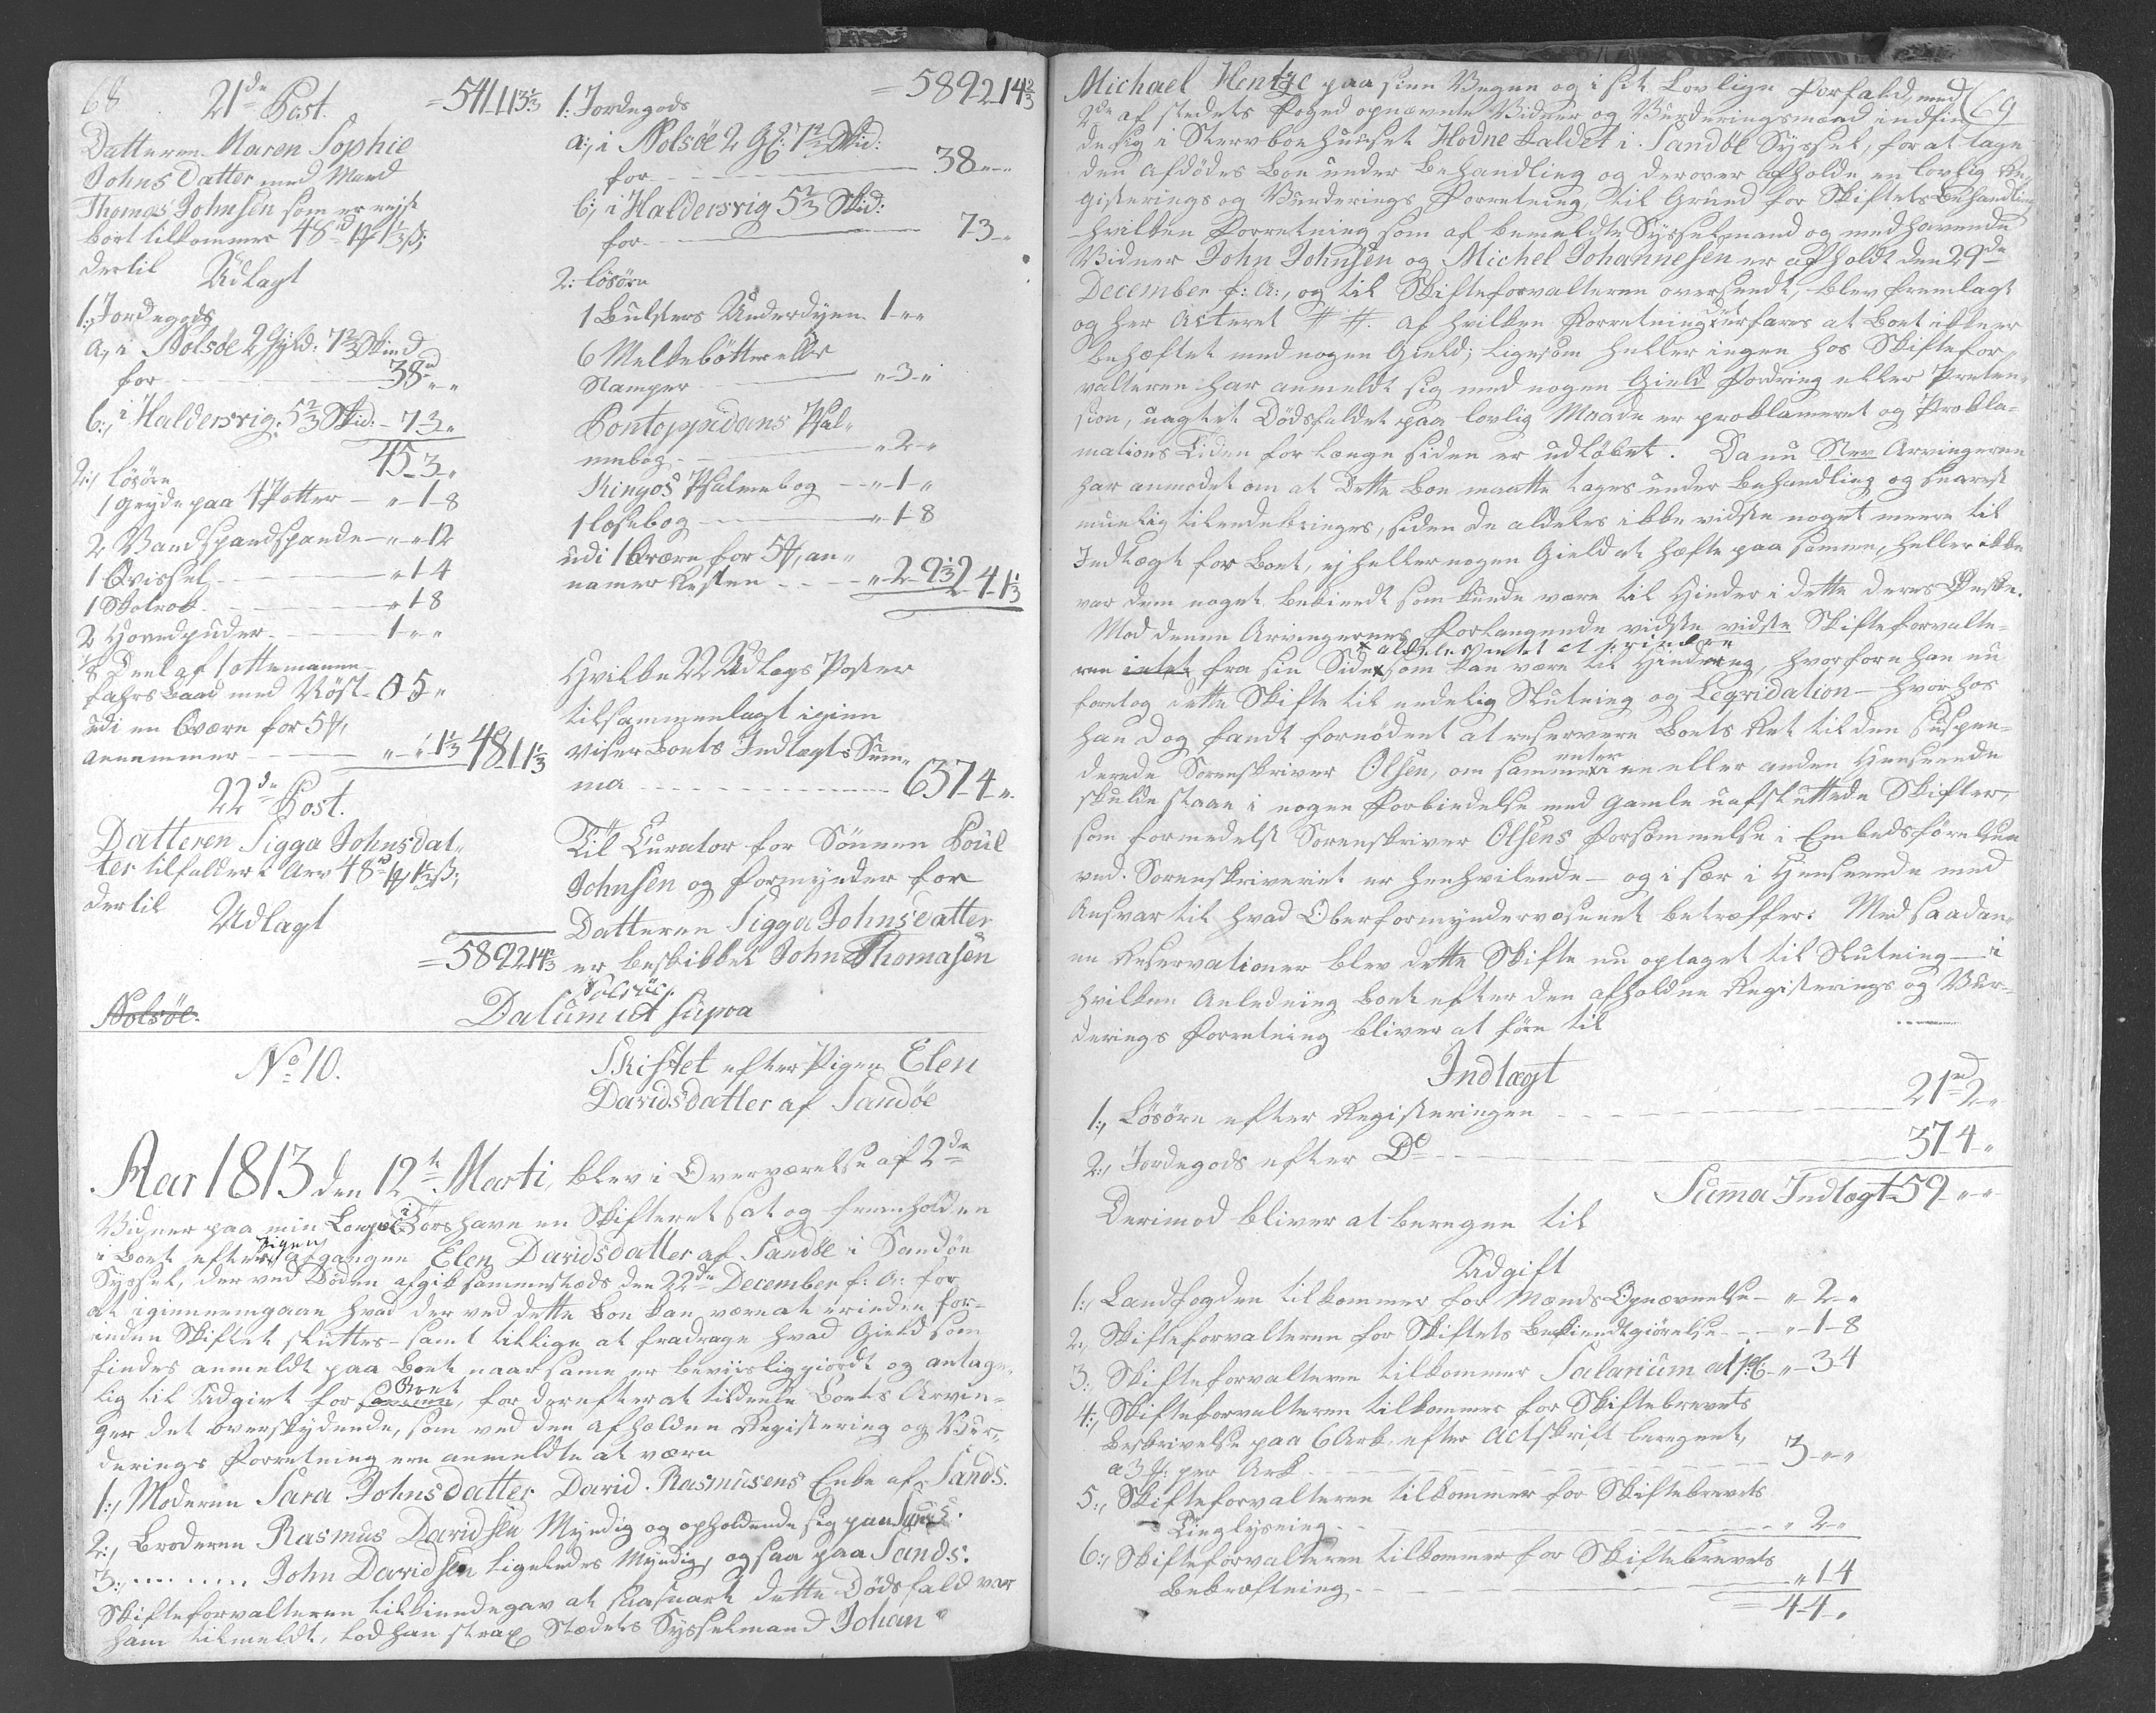 68
21de Post. = 541.1.13 1/3
Datteren Maren Sophie
Johns Datter med Mand
Thomas Johnsen som er rejst
bort tilkommer 48 rd 4 1 1/3 ß;
dertil Udlagt
1:, Jordegods
a, i Nolsöe 2 Gyld: 7 2/3 Skind
for 38 rd " "
b:, i Haldersvig 5 2/3 Skid: - 7-3-"
45-3-"
2:, Lösöre
1 Gryde paa 4 Potter - " - 1-8
2 Vandspandspande - " - " 12
1 Qvissel - " 1-4
1 Skolrok - " 1-8
2 Hovedpuder - 1 - " "
1/8 Deel af 1 ottemanne-
fahrs Baad med Nöst - 0-5-"
udi en 6 være for 5 #,
annammer - " - " 1 1/3 48.1.1 1/3
22de Post.
Datteren Sigga Johnsdat-
ter tilfalder i Arv 48 rd 4 1 1/3 ß;
dertil Udlagt
= 589.2.14 2/3
Nolsöe.
= 589.2.14 2/3
1: Jordegods
a:, i Nolsöe 2 Gl: 7 2/3 Skid:
for 38 - " - "
b:, i Haldersvig 5 2/3 Skid:
for 7-3-"
2: Lösöre
1 Bulsters Underdyne 1 - " "
6 Melkebötter eller
Stamper " - 3 - "
Pontoppidans Psal-
mebog " - 2 - "
Kingos Psalmebog - " - 1 - "
1 Losebog - " 1-8
udi 1 6 være for 5 #, an-
namer Resten " - 2 - 9 1/3 2 4-1 1/3
Hvilke 22 Udlægs Poster
tilsammenlagt igien
viser Boets Indtægts Sum-
ma 637-4-"
Til Curator for Sönnen Poul
Johnsen og Formynder for
Datteren Sigga Johnsdatter
er beskikket John Thomasen
Nolsöe.
Datum ut supra
No 10.
Skiftet efter Pigen Elen
Davidsdatter af Sandöe
Aar 1813 den 12te Marti, blev i Overværelse af 2de
Vidner paa min Longie i Torshavn en Skifteret sat og fremholden
i Boet efter Pigen afgangne Elen Davidsdatter af Sandöe i Sandöe
Syssel, der ved Döden afgik sammestæds den 22de December f: A: for
at igiennemgaae hvad der ved dette Boe kan være at erindre for-
inden Skiftet sluttes - samt tillige at fradrage hvad Gield som
findes anmeldt paa Boet naar same er beviisliggiordt og antage-
lig til Udgivt for Boet samme, for derefter at tildeele Boets Arvin-
ger det overskydende, som ved den afholdne Registering og Vur-
derings Forretning ere anmeldte at være
1:, Moderen Sara Johnsdatter David Rasmusens Enke af Sands.
2:, Broderen Rasmus Davidsen Myndig og opholdende sig paa Sands.
3:, ........ John Davidsen ligeledes Myndig, ogsaa paa Sands.
Skifteforvalteren tilkiendegav at saasnart dette Dödsfald var
ham tilmeldt, lod han strax Stædets Sysselmand Johan
69
Michael Hentze paa sine Vegne og i sit Lovlige Forfald, med
2de af stedets Foged opnævnte Vidner og Vurderingsmænd indfin-
de sig i Stervboehuuset Hodne kaldet i Sandöe Syssel, for at tage
den Afdödes Boe under Behandling og derover afholde en lovlig Re-
gisterings og Vurderings Forretning, til Grund for Skiftets Behandling
hvilken Forretning som af bemeldte Sysselmand og medhavende
Vidner John Johnsen og Michel Johannesen er afholdt den 29de
December f: A:, og til Skifteforvalteren oversendt, blev fremlagt
og her Acteret ##. af hvilken Forretning erfares at Boet ikke er
behæftet med nogen Gield; ligesom heller ingen hos Skiftefor-
valteren har anmeldt sig med nogen Gield Fordring eller Præten-
sion, uagtet Dödsfaldet paa lovlig Maade er proklameret og Prokla-
mations Tiden for længe siden er udlöbet. Da nu Arvingerne
har anmodet om at dette Boe maatte tages under Behandling og snarest
muelig tilendebringes, siden de aldeles ikke vidste noget meere til
Indtægt for Boet, ej heller nogen Gield at hæfte paa samme, heller ikke
var dem noget bekiendt som kunde være til Hinder i dette deres Önske.
Mod denne Arvingernes Forlangende vidste vidste Skifteforvalte-
x aldeles intet at erindre
ren intet fra sin Side x som kan være til Hindring, hvorfore han nu
foretog dette Skifte til endelig Slutning og Leqvidation - hvorhos
han dog fandt fornödent at reservere Boets Ret til den Suspen-
derede Sorenskriver Olsen, om samme enten i een eller anden Henseende
skulde staae i nogen Forbindelse med gamle uafsluttede Skifter,
som formedelst Sorenskriver Olsens Forsömmelse i Embedsförelsen
ved Sorenskriveriet er henhvilende - og i sær i Henseende med
Ansvar til hvad Overformynderwæsenet betræffer: Med saadan-
ne Reservationer blev dette Skifte nu optaget til Slutning - i
hvilken Anledning Boet efter den afholdne Registerings og Vur-
derings Forretning bliver at före til
Indtægt
1:, Lösöre efter Registeringen 21 rd 2-"
2:, Jordegods efter Do 37-4-"
Suma Indtægt 59 - " - "
Derimod bliver at beregne til
Udgift
1:, Landfogden tilkommer for Mænds Opnævnelse - " - 2 - "
2, Skifteforvalteren for Skiftets Bekiendtgiörelse - " - 1-8
3:, Skifteforvalteren tilkommer Salarium at 1 pC. - " - 3-4
4:, Skifteforvalteren tilkommer for Skiftebrevets
Beskrivelse paa 6 Ark efter Actskrift beregnet,
a 3 #: per Ark 3 - " - "
5:, Skifteforvalteren tilkommer for Skiftebrevets
Tinglysning " 2 - "
6:, Skifteforvalteren tilkommer for Skiftebrevets
Bekræftning " 1-4
= 4-4-"